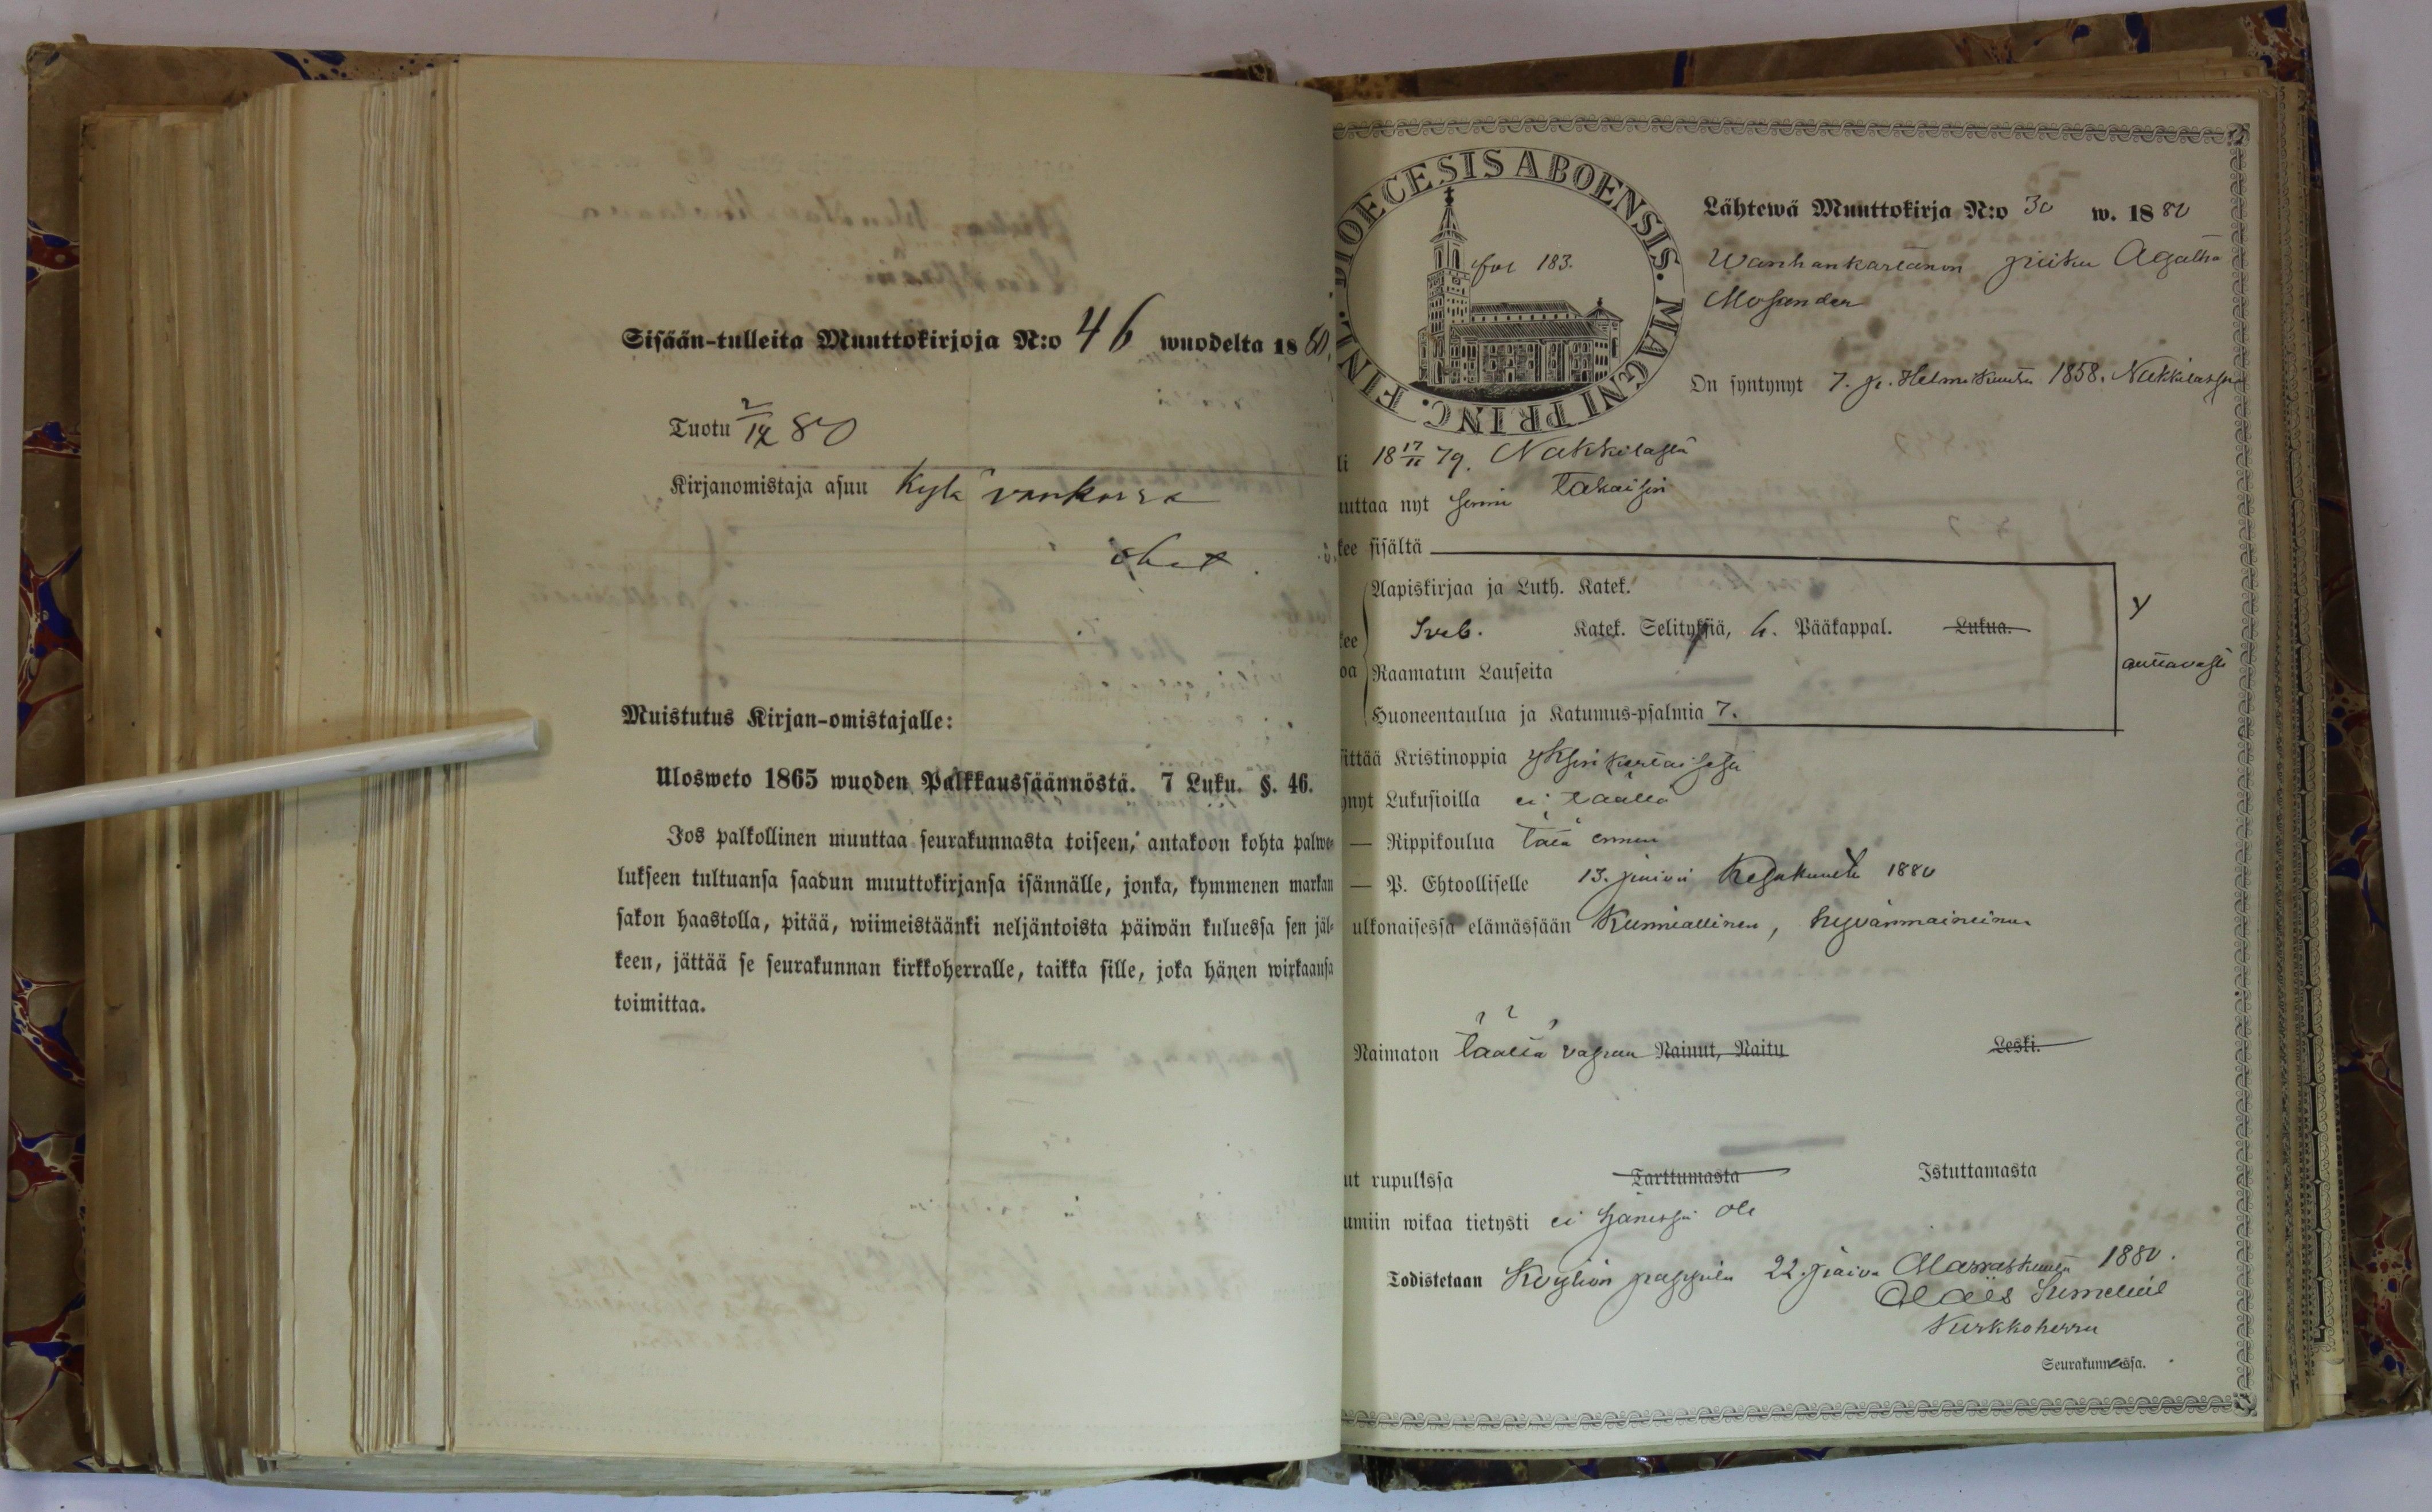 Sisään-tulleita Muuttokirjoja N:o 46 wuodelta 1880.
Tuotu 80
Kirjanomistaja asuu Kylä
Muistutus Kirjan-omistajalle:
Ulosweto 1865 wuoden Palkkaussäännöstä. 7 Luku. §. 46.
Jos palkollinen muuttaa seurakunnasta toiseen, antakoon kohta palwe-
lukseen tultuansa saadun muuttokirjansa isännälle, jonka, kymmenen markan
sakon haastolla, pitää, wiimeistäänki neljäntoista päiwän kuluessa sen jäl-
keen, jättää se seurakunnan kirkkoherralle, taikka sille, joka hänen wirkaansa
toimittaa.
DIOECESIS ABOENSIS. MAGNI PRINC. FINL.
fol 183.
Lähtewä Muuttokirja N:o 30 w. 1880
Wanhankartanon piika Agatha
Mosander
On syntynyt 7. p. Helmikuuta 1858. Nakkilassa
li 18 17/11 79. Nakkilasta
uttaa nyt sinne takaisin
kee sisältä
Aapiskirjaa ja Luth. Katek.
Sveb. Katek. Selityksiä, h. Pääkappal. Lukua.
Raamatun Lauseita
auttavasti
Huoneentaulua ja Katumus-psalmia 7.
ittää Kristinoppia yksinkertaisesti
ynyt Lukusioilla ei täällä
— Rippikoulua tätä ennen
— P. Ehtoolliselle 13. päivä Kesäkuuta 1880
ulkonaisessa elämässään Kunniallinen, hyvänmaineinen
Naimaton täällä vapaa Nainut, Naitu Leski.
ut rupulissa Tarttumasta Istuttamasta
umiin wikaa tietysti ei hänessä ole
Todistetaan Köyliön pappila 22. päivä Marraskuuta 1880.
Sumelius
Kirkkoherra
Seurakunnassa.